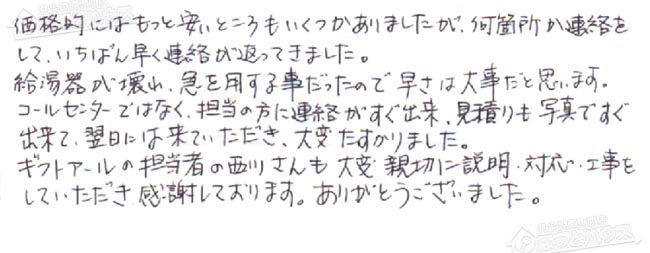 価格的にはもっと安いところもいくつかありましたが、何箇所か連絡を
して、いちばん早く連絡が返ってきました。
給湯器が壊れ、急を用する事だったので早さは大事だと思います。
コールセンターではなく、担当の方に連絡がすぐ出来、見積りも写真ですぐ
出来て、翌日には来ていただき、大変たすかりました。
ギフトアールの担当者の西川さんも大変親切に説明・対応・工事を
していただき感謝しております。ありがとうございました。